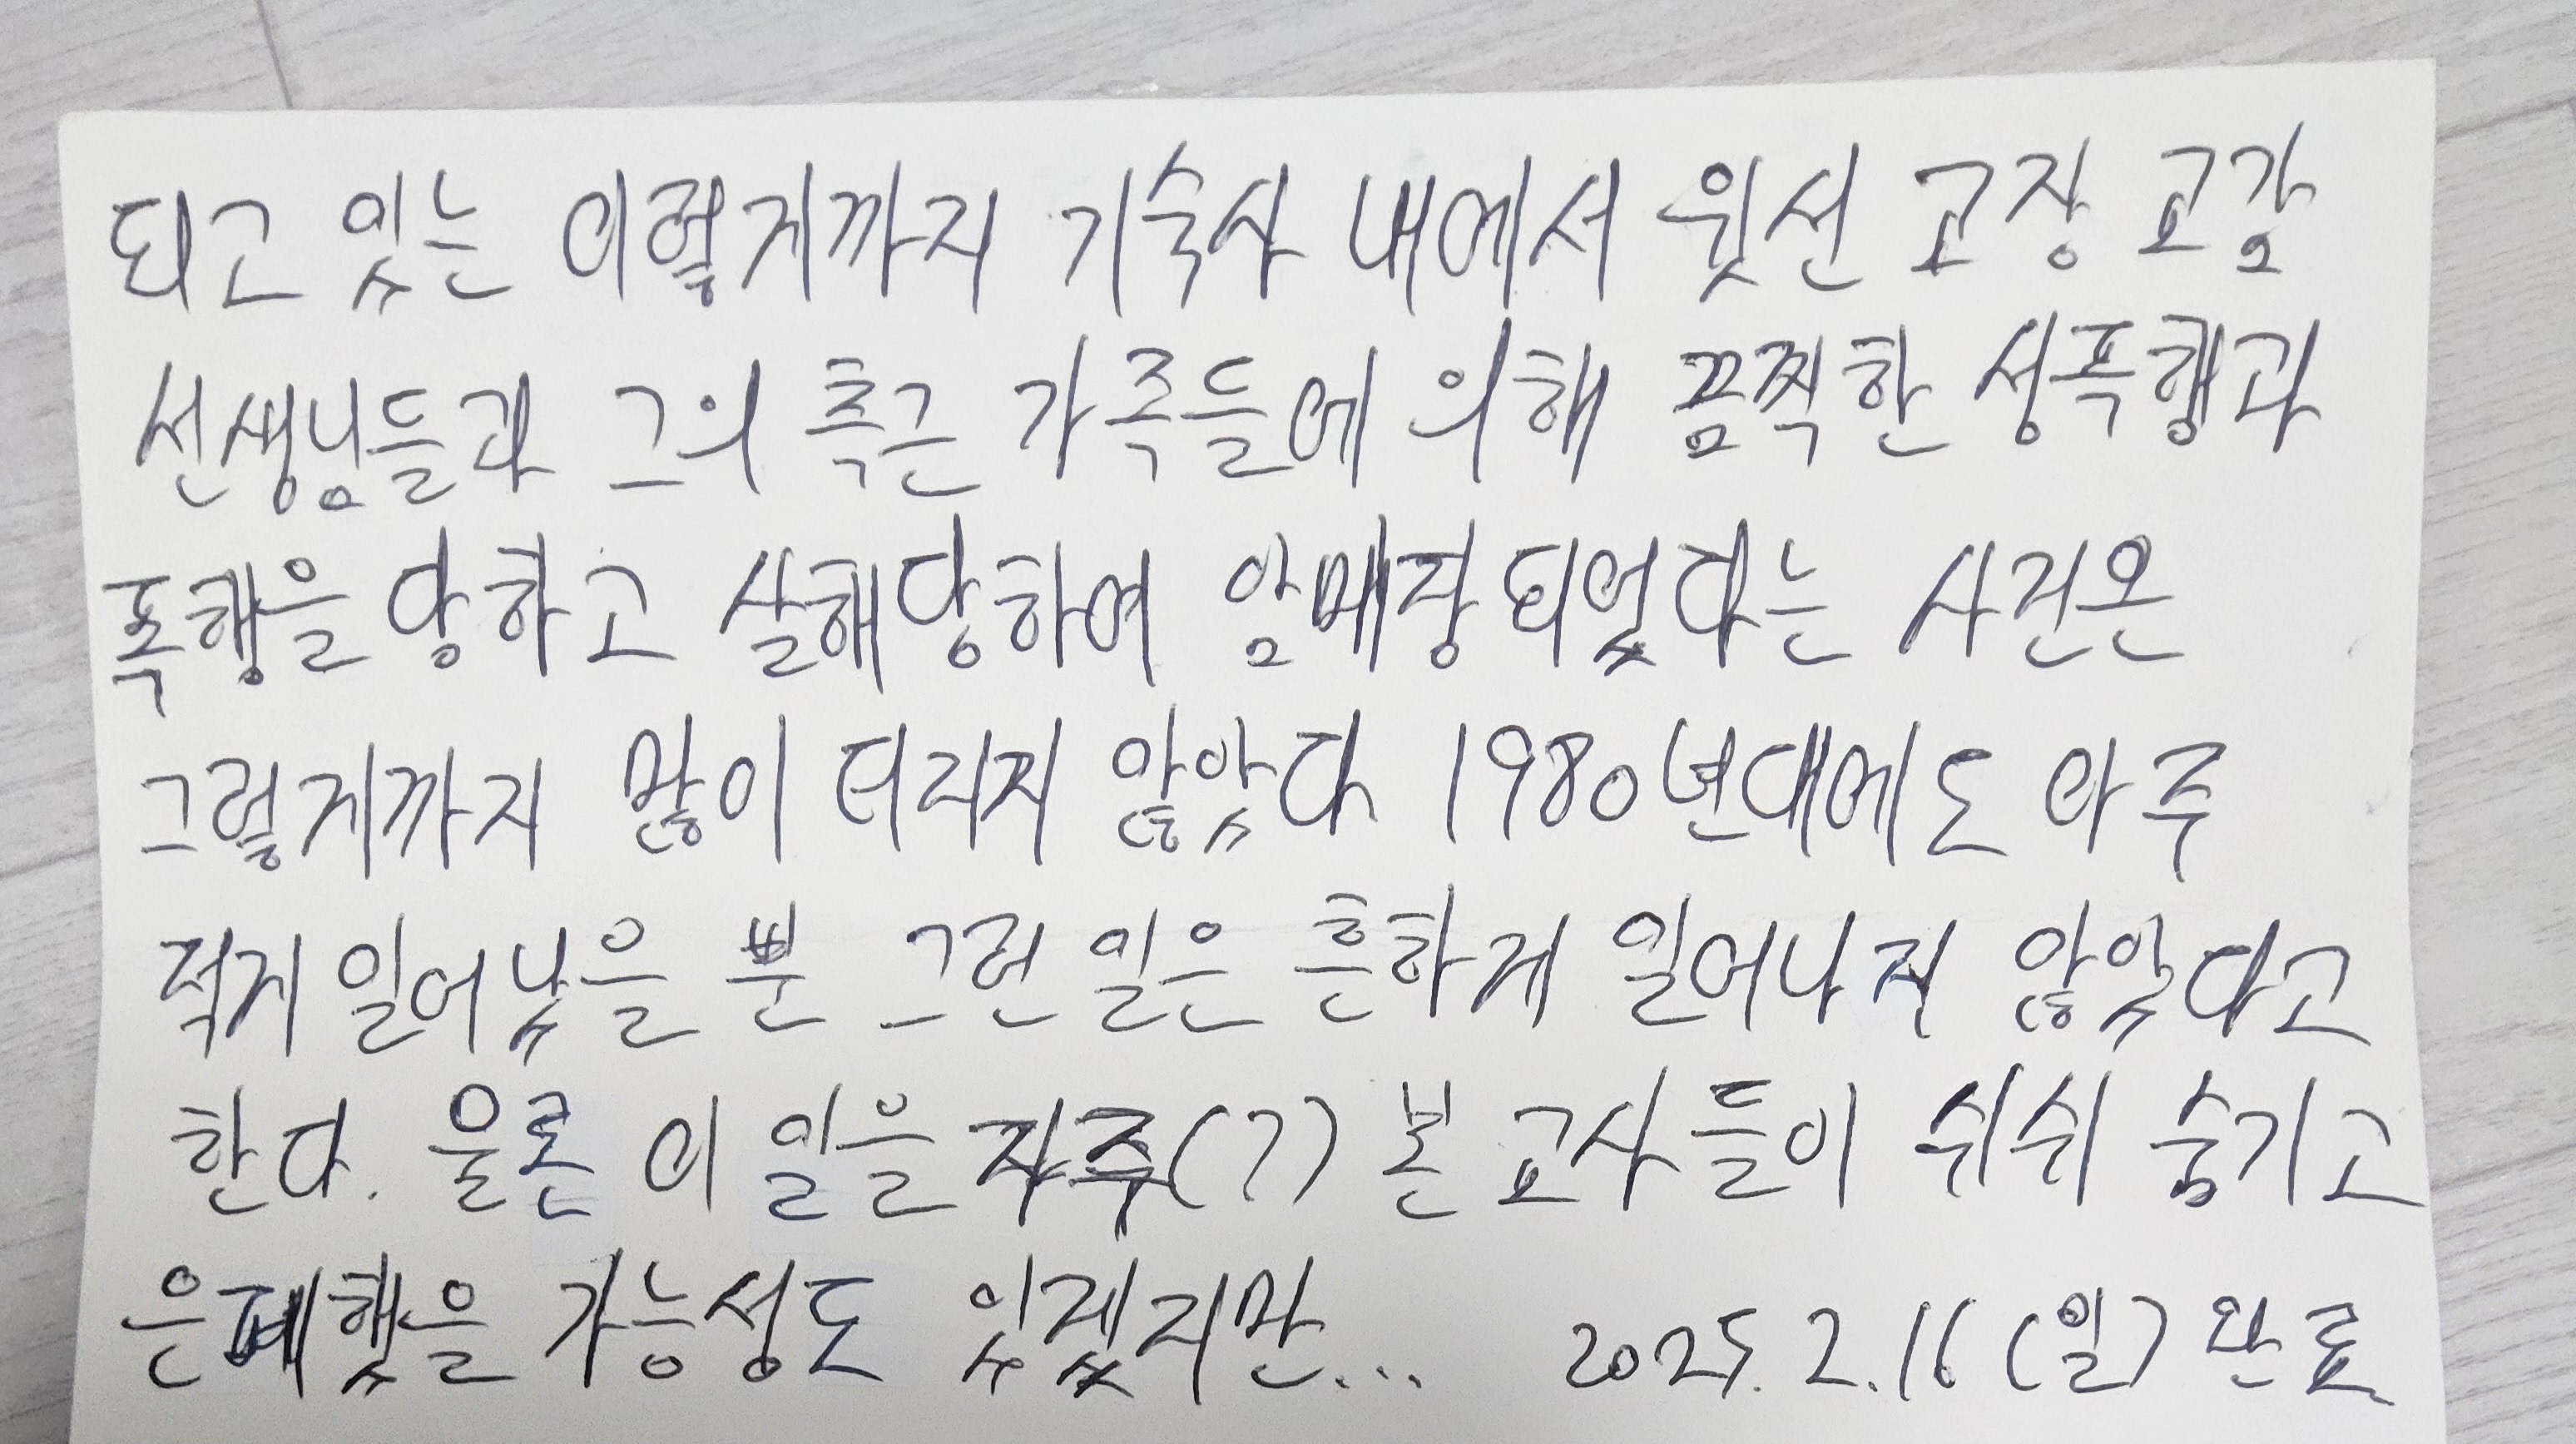 되고 있는 이렇게까지 기숙사 내에서 윗선 교장 교감
선생님들과 그의 측근 가족들에 의해 끔찍한 성폭행과
폭행을 당하고 살해당하여 암매장되었다는 사건은
그렇게까지 많이 터지지 않았다 1980년대에도 아주
적게 일어났을 뿐 그런 일은 흔하게 일어나지 않았다고
한다. 물론 이 일을 자주(?) 본 교사들이 쉬쉬 숨기고
은폐했을 가능성도 있겠지만... 2025. 2. 16 (일) 완료